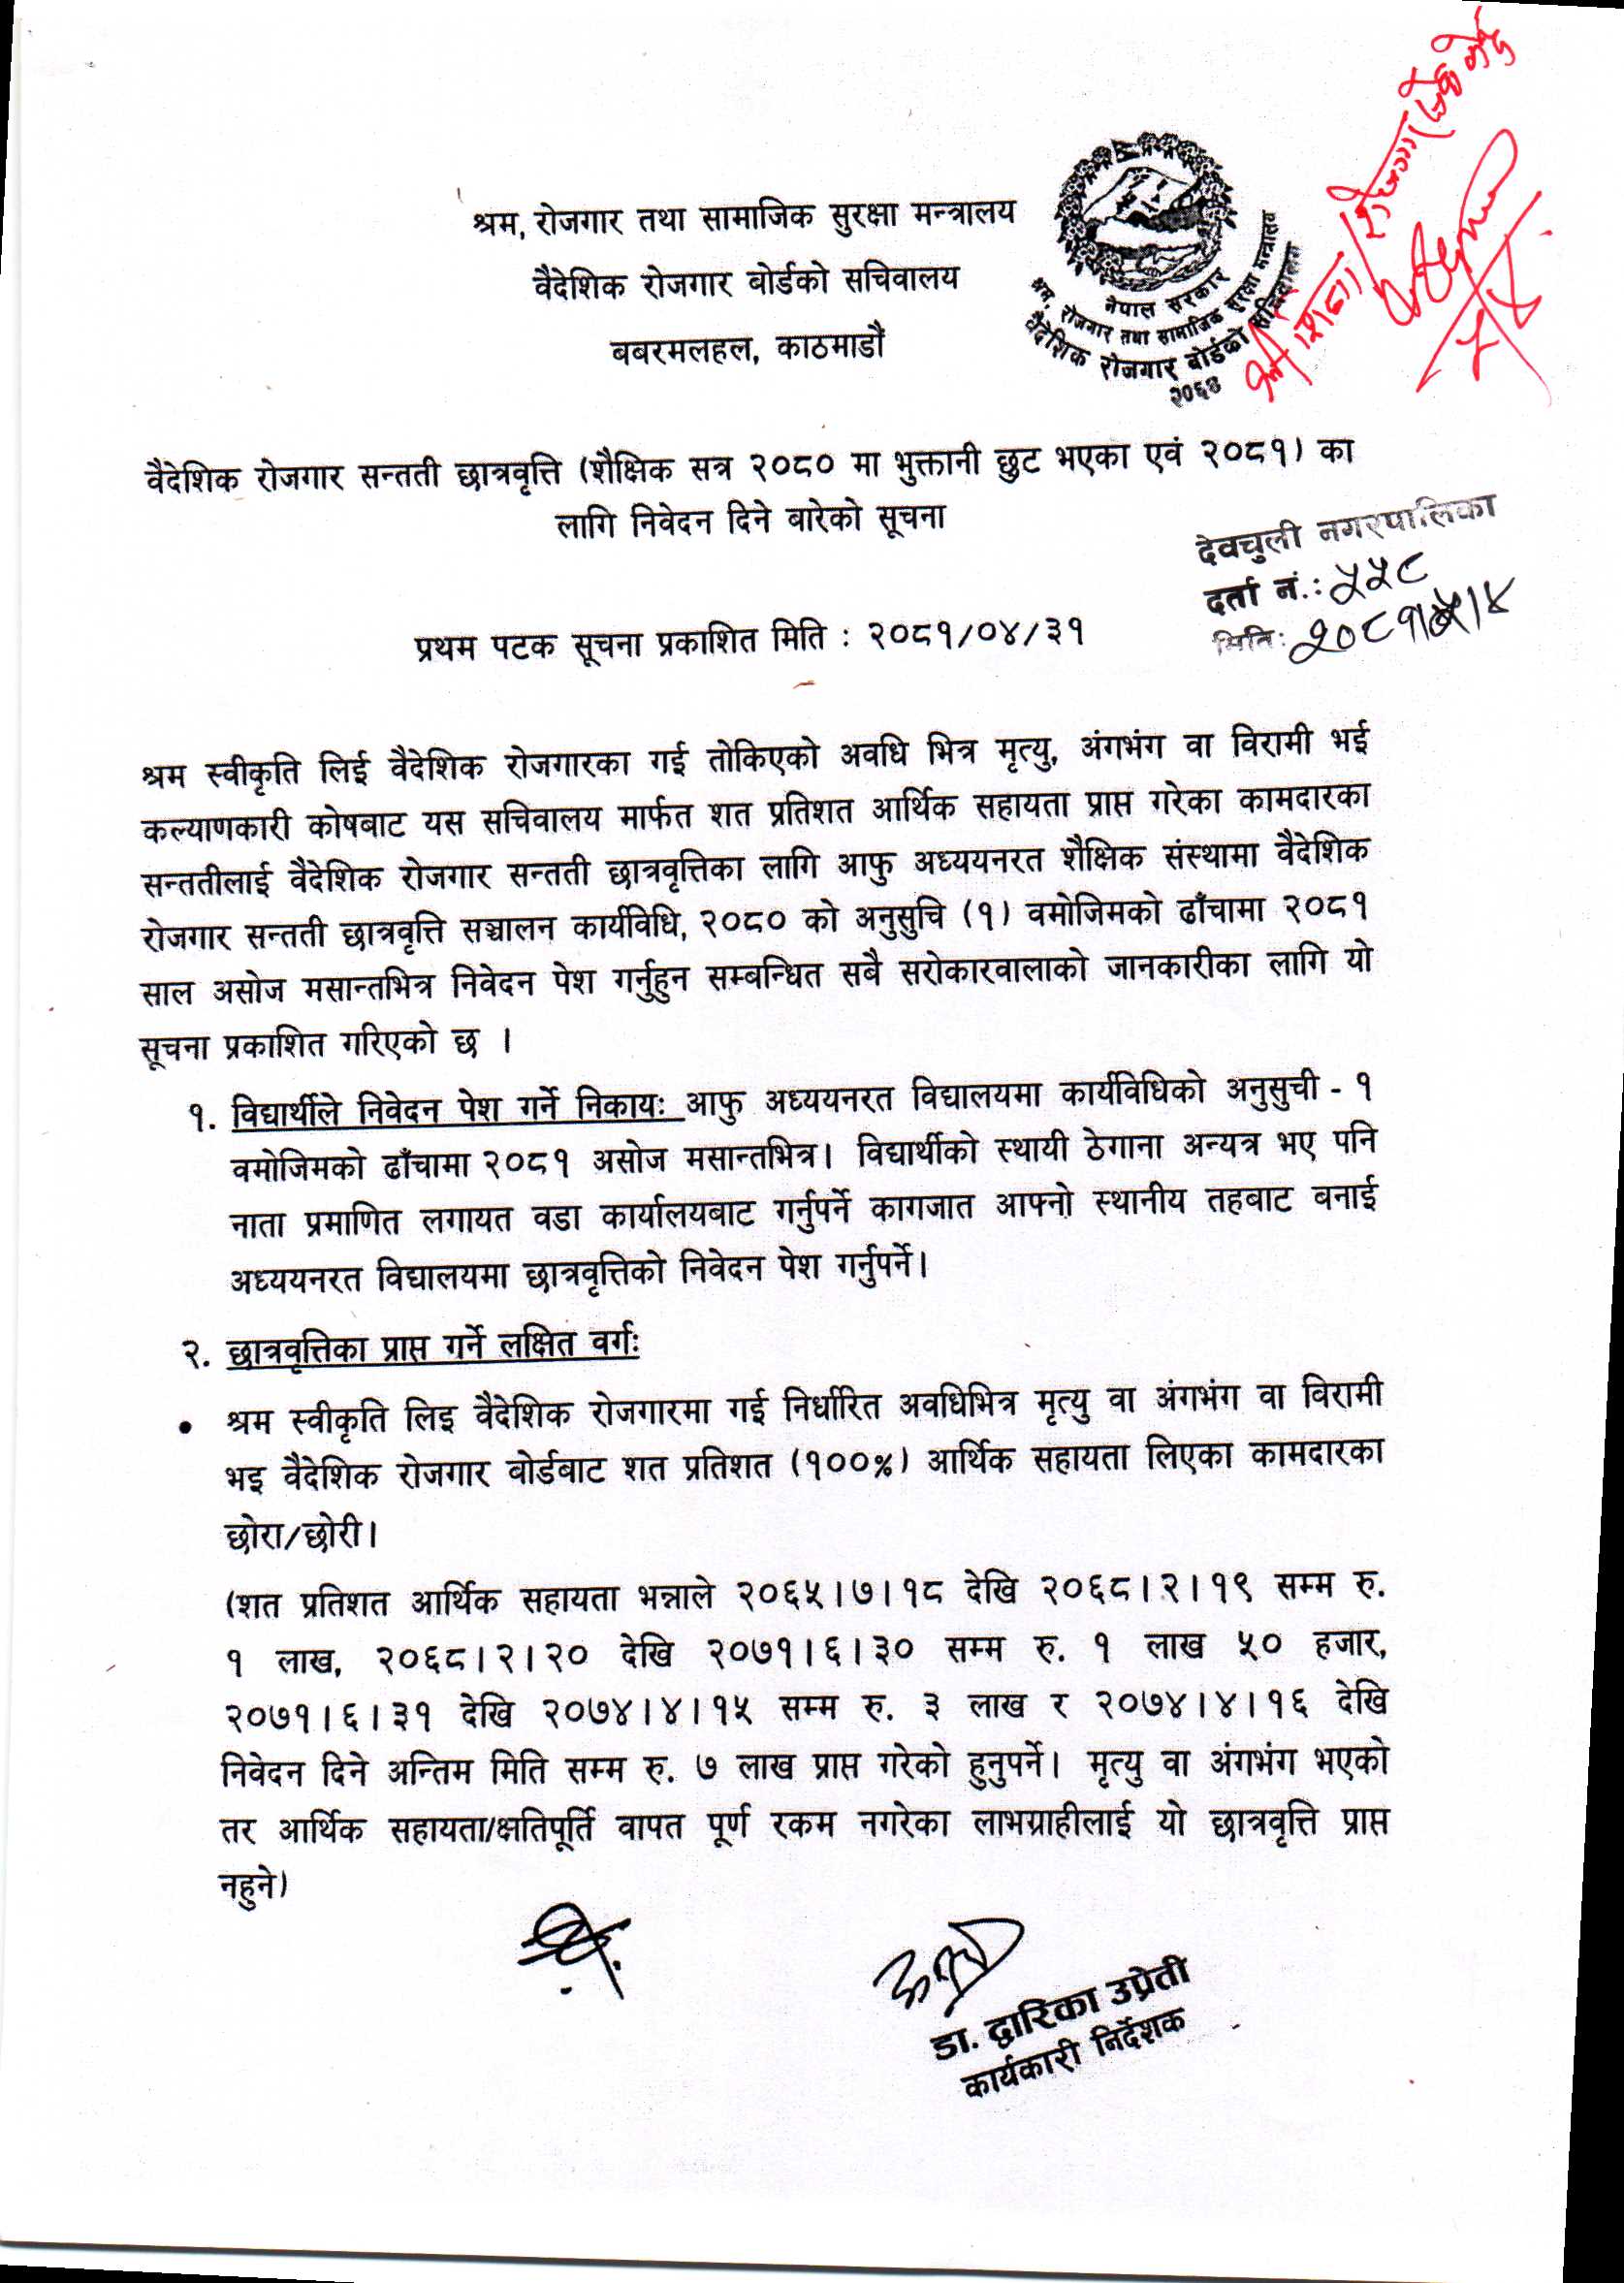 श्रम, रोजगार तथा सामाजिक सुरक्षा मन्त्रालय
वैदेशिक रोजगार बोर्डको सचिवालय
बबरमलहल, काठमाडौं
नेपाल सरकार
श्रम, रोजगार तथा सामाजिक सुरक्षा मन्त्रालय
वैदेशिक रोजगार बोर्डको सचिवालय
२०६४
वैदेशिक रोजगार सन्तती छात्रवृत्ति (शैक्षिक सत्र २०८० मा भुक्तानी छुट भएका एवं २०८१) का
लागि निवेदन दिने बारेको सूचना
देवचुली नगरपालिका
दर्ता नं.: ५५८
मिति: २०८१/५/४
प्रथम पटक सूचना प्रकाशित मिति : २०८१/०४/३१
श्रम स्वीकृति लिई वैदेशिक रोजगारका गई तोकिएको अवधि भित्र मृत्यु, अंगभंग वा विरामी भई
कल्याणकारी कोषबाट यस सचिवालय मार्फत शत प्रतिशत आर्थिक सहायता प्राप्त गरेका कामदारका
सन्ततीलाई वैदेशिक रोजगार सन्तती छात्रवृत्तिका लागि आफु अध्ययनरत शैक्षिक संस्थामा वैदेशिक
रोजगार सन्तती छात्रवृत्ति सञ्चालन कार्यविधि, २०८० को अनुसुचि (१) वमोजिमको ढाँचामा २०८१
साल असोज मसान्तभित्र निवेदन पेश गर्नुहुन सम्बन्धित सबै सरोकारवालाको जानकारीका लागि यो
सूचना प्रकाशित गरिएको छ ।
१. विद्यार्थीले निवेदन पेश गर्ने निकायः आफु अध्ययनरत विद्यालयमा कार्यविधिको अनुसुची - १
वमोजिमको ढाँचामा २०८१ असोज मसान्तभित्र। विद्यार्थीको स्थायी ठेगाना अन्यत्र भए पनि
नाता प्रमाणित लगायत वडा कार्यालयबाट गर्नुपर्ने कागजात आफ्नो स्थानीय तहबाट बनाई
अध्ययनरत विद्यालयमा छात्रवृत्तिको निवेदन पेश गर्नुपर्ने।
२. छात्रवृत्तिका प्राप्त गर्ने लक्षित वर्गः
• श्रम स्वीकृति लिइ वैदेशिक रोजगारमा गई निर्धारित अवधिभित्र मृत्यु वा अंगभंग वा विरामी
भइ वैदेशिक रोजगार बोर्डबाट शत प्रतिशत (१००%) आर्थिक सहायता लिएका कामदारका
छोरा/छोरी।
(शत प्रतिशत आर्थिक सहायता भन्नाले २०६५।७।१८ देखि २०६८।२।१९ सम्म रु.
१ लाख, २०६८।२।२० देखि २०७१।६।३० सम्म रु. १ लाख ५० हजार,
२०७१।६।३१ देखि २०७४।४।१५ सम्म रु. ३ लाख र २०७४।४।१६ देखि
निवेदन दिने अन्तिम मिति सम्म रु. ७ लाख प्राप्त गरेको हुनुपर्ने। मृत्यु वा अंगभंग भएको
तर आर्थिक सहायता/क्षतिपूर्ति वापत पूर्ण रकम नगरेका लाभग्राहीलाई यो छात्रवृत्ति प्राप्त
नहुने)
डा. द्वारिका उप्रेती
कार्यकारी निर्देशक